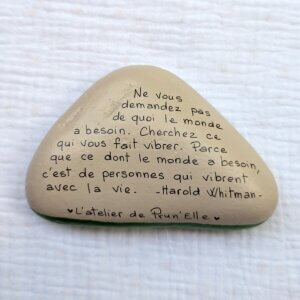 Ne vous
demandez pas
de quoi le monde
a besoin. Cherchez ce
qui vous fait vibrer. Parce
que ce dont le monde a besoin,
c'est de personnes qui vibrent
avec la vie. -Harold Whitman-
♥ L'atelier de Prun'Elle ♥